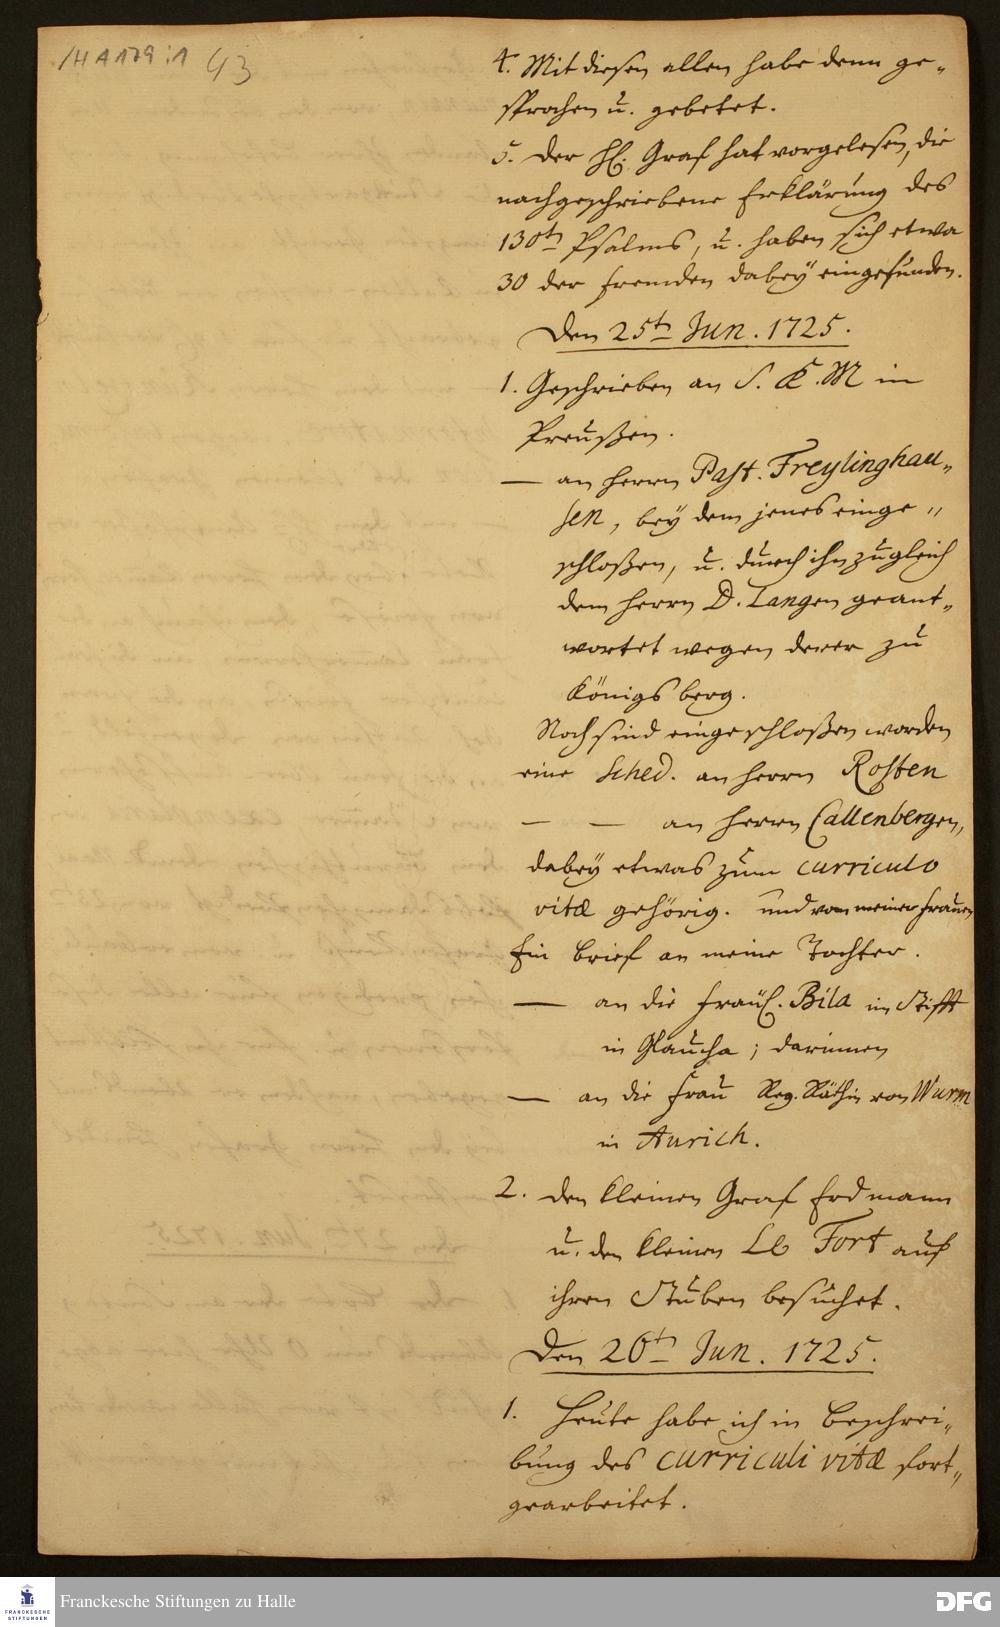 /H A 179 : 1 43
4. Mit diesen allen habe denn ge-
sprochen u. gebetet.
5. Der H. Graf hat vorgelesen, die
nachgeschriebene Erklärung des
130t. Psalms, u. haben sich etwa
30 der fremden dabey eingefunden.
Den 25t. Jun. 1725.
1. Geschrieben an S. K. M in
Preußen.
— an Herrn Past. Freylinghau-
sen, bey dem jenes einge-
schloßen, u. durch ihn zugleich
dem Herrn D. Langen geant-
wortet wegen derer zu
Königsberg.
Noch sind eingeschloßen worden
eine Sched. an Herrn Rosten
— — an Herrn Callenbergen,
dabey etwas zum curriculo
vitæ gehörig. und von meiner Frauen
Ein Brief an meine Tochter.
— an die Fräul. Bila im Stifft
in Glaucha; darinnen
— an die Frau Reg. Räthin von Wurm
in Aurich.
2. den kleinen Graf Erdmann
u. den kleinen Le Fort auf
ihren Stuben besuchet.
Den 26t. Jun. 1725.
1. Heute habe ich in Beschrei-
bung des curriculi vitæ fort-
gearbeitet.
FRANCKESCHE
STIFTUNGEN
Franckesche Stiftungen zu Halle
DFG